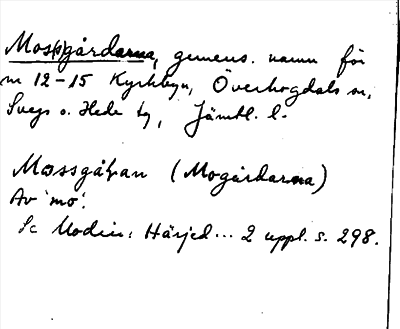 Mos(s)gårdarna, gemens. namn för
nr 12-15 Kyrkbyn, Överhogdals sn,
Svegs o. Hede tg, Jämtl. l.
Mossgåɽan (Mogårdarna)
Av 'mo'.
Se Modin: Härjed... 2 uppl. s. 298.